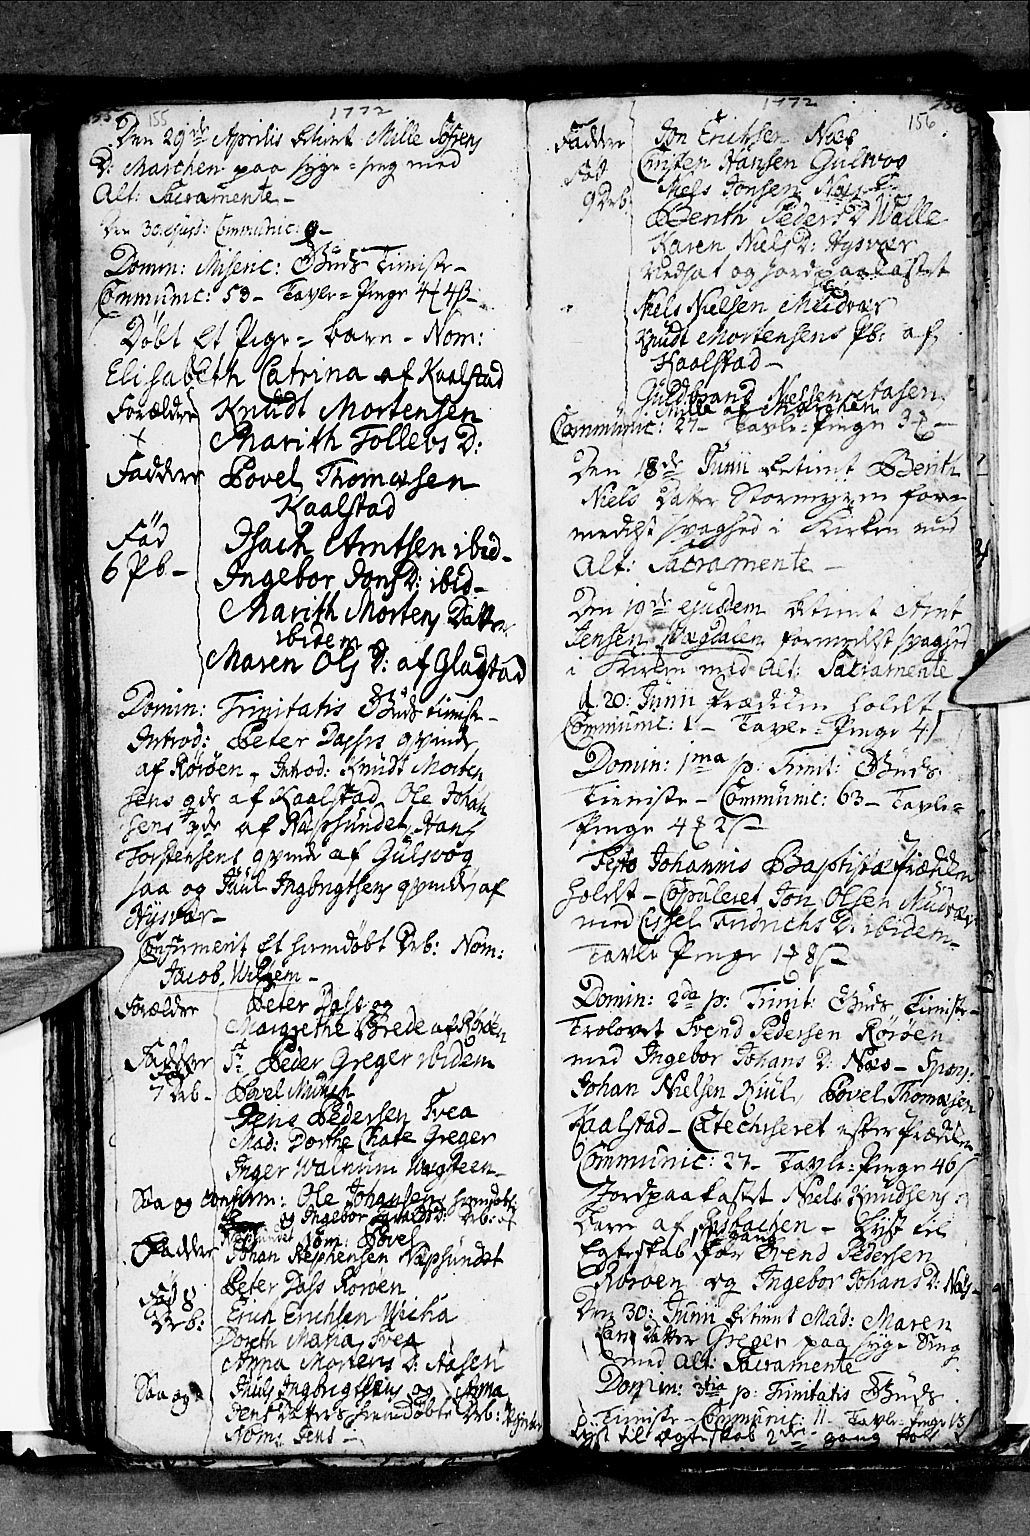 155 1772
Den 29de Aprilis betient Mille Sörens
D: Marchen paa syge-seng med
Alt: Sacramente-
Den 30 ejusd: Communic: 9-
Domin: Misenc: Guds Tieniste-
Communic: 53- Tavle-Penge
Döbt et Pige-barn- Nom:
Elisabeth Catrina af Kaalstad
Forældre Knudt Mortensen
Marith Tollevs D:
Faddere Povel Thomæsen
Kaalstad
Föd Isach Arntsen ibid-
6 Pb- Ingebor Jons D: ibid-
Marith Mortens Datter
ibidem
Maren Ols D: af Glagstad
Domin: Trinitatis Guds tieniste-
Introd: Peter Dasses qvinde
af Röröen, Introd: Knudt Morten
sens qde af Kaalstad, Ole Johan
sens qde af Næssundet, Hans
Torstensens qvinde af Gulsvog
saa og Paul Ingbrigtsens qvinde af
Hysvær-
Confirmerit et hiemdöbt Drb: Nom:
Jacob Wilhem-
Forældre Peter Dass og
Margrethe Brede af Röröen
Faddere Sr Peder Greger ibidem
7 Drb- Povel Munch
Jens Pedersen Tvea
Mad: Dorthe Chate Greger
Inger Walnum
Saa og confirm: Ole Johansens hiemdöbte
og Ingebor D: Drb: af
Nom: Povel
Faddere Johan Stephensen Næssundet
Peter Dass Röröen
Föd 8 Erich Erichsen Wicha
Drb: Dorth Maria Tvea
Anna Mortens D: Aasen
Saa og Pauls Ingbrigtsens og Anna
Jens Datters hiemdöbte Drb:
Nom: Jens-
1772 156
Faddere Jon Erichsen Næs
Föd Christen Hansen Gulsvog
9 Drb Niels Jonsen Næs
Berith Peders D: Walle
Karen Niels D: Hysvær
Indsat og jordpaakastet
Niels Nielsen Mudvær
Knudt Mortensens Pb: af
Kaalstad-
Guldbrand Nielsen Aasen
Mille af Marchen
Communic: 27- Tavle-Penge 3
Den 18de Junii betient Berith
Niels Datter Stormyren for-
medelst svaghed i Kirken med
Alt: Sacramente-
Den 19de ejusdem betient Arnt
Jensen Magdalen formedelst svaghed
i Kirken med Alt: Sacramente
d. 20: Junii Prædiken holdt
Communic: Tavle-Penge 4
Domin: 1ma p: Trinit: Guds
Tieniste- Communic: 63- Tavle-
Penge
Festo Johannis Baptistæ Prædiken
holdt- Copuleret Jon Olsen Mudvær
med Cissel Fridrichs D: ibidem-
Tavle Penge
Domin: 2da p: Trinit: Guds Tieniste-
Trolovet Svend Pedersen Röröen
med Ingebor Johans D: Næs- Spons:
Johan Nielsen Kiul, Povel Thomæsen
Kaalstad- Catechiseret efter Prædiken
Communic: 27- Tavle-Penge 46
Jordpaakastet Niels Knudsens
barn af - Lyst til
Egteskab gang for Svend Pedersen
Röröen og Ingebor Johans D: Næs-
Den 30: Junii betient Mad: Maren
Datter Greger paa syge Seng
med Alt: Sacramente
Domin: 3tia p: Trinitatis Guds
Tieniste- Communic: 11- Tavle-Penge
Lyst til Egteskab 2den gang